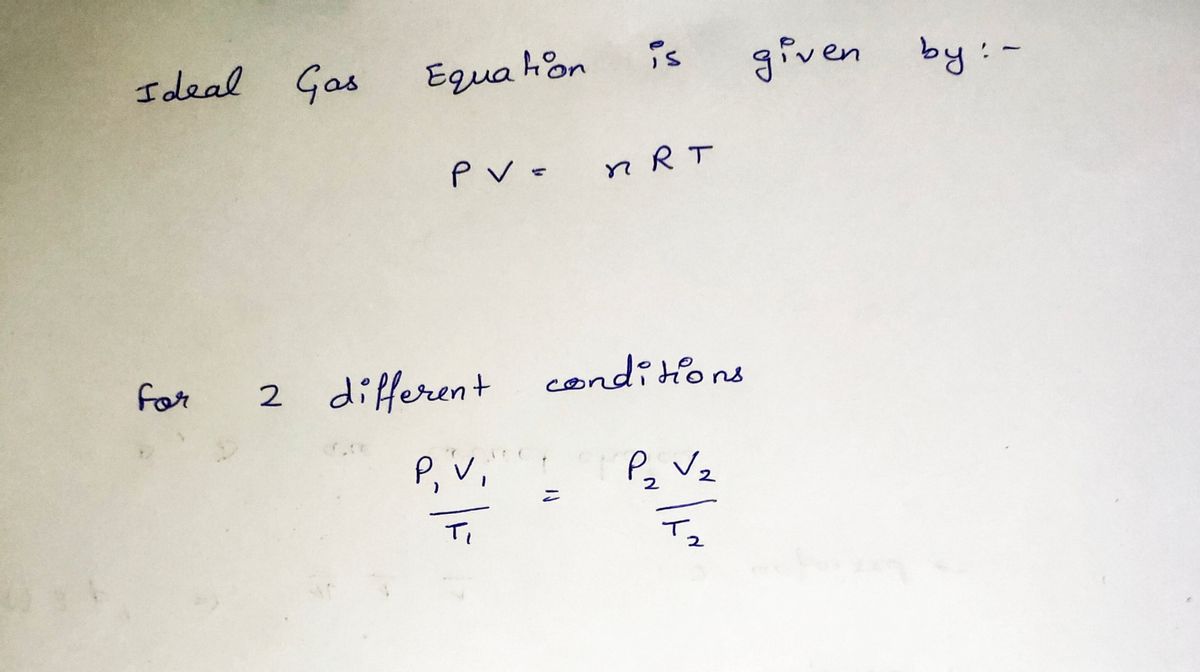 Ideal Gas Equation is given by :-
PV = nRT
for 2 different conditions
P₁ V₁ = P₂ V₂
T₁ T₂